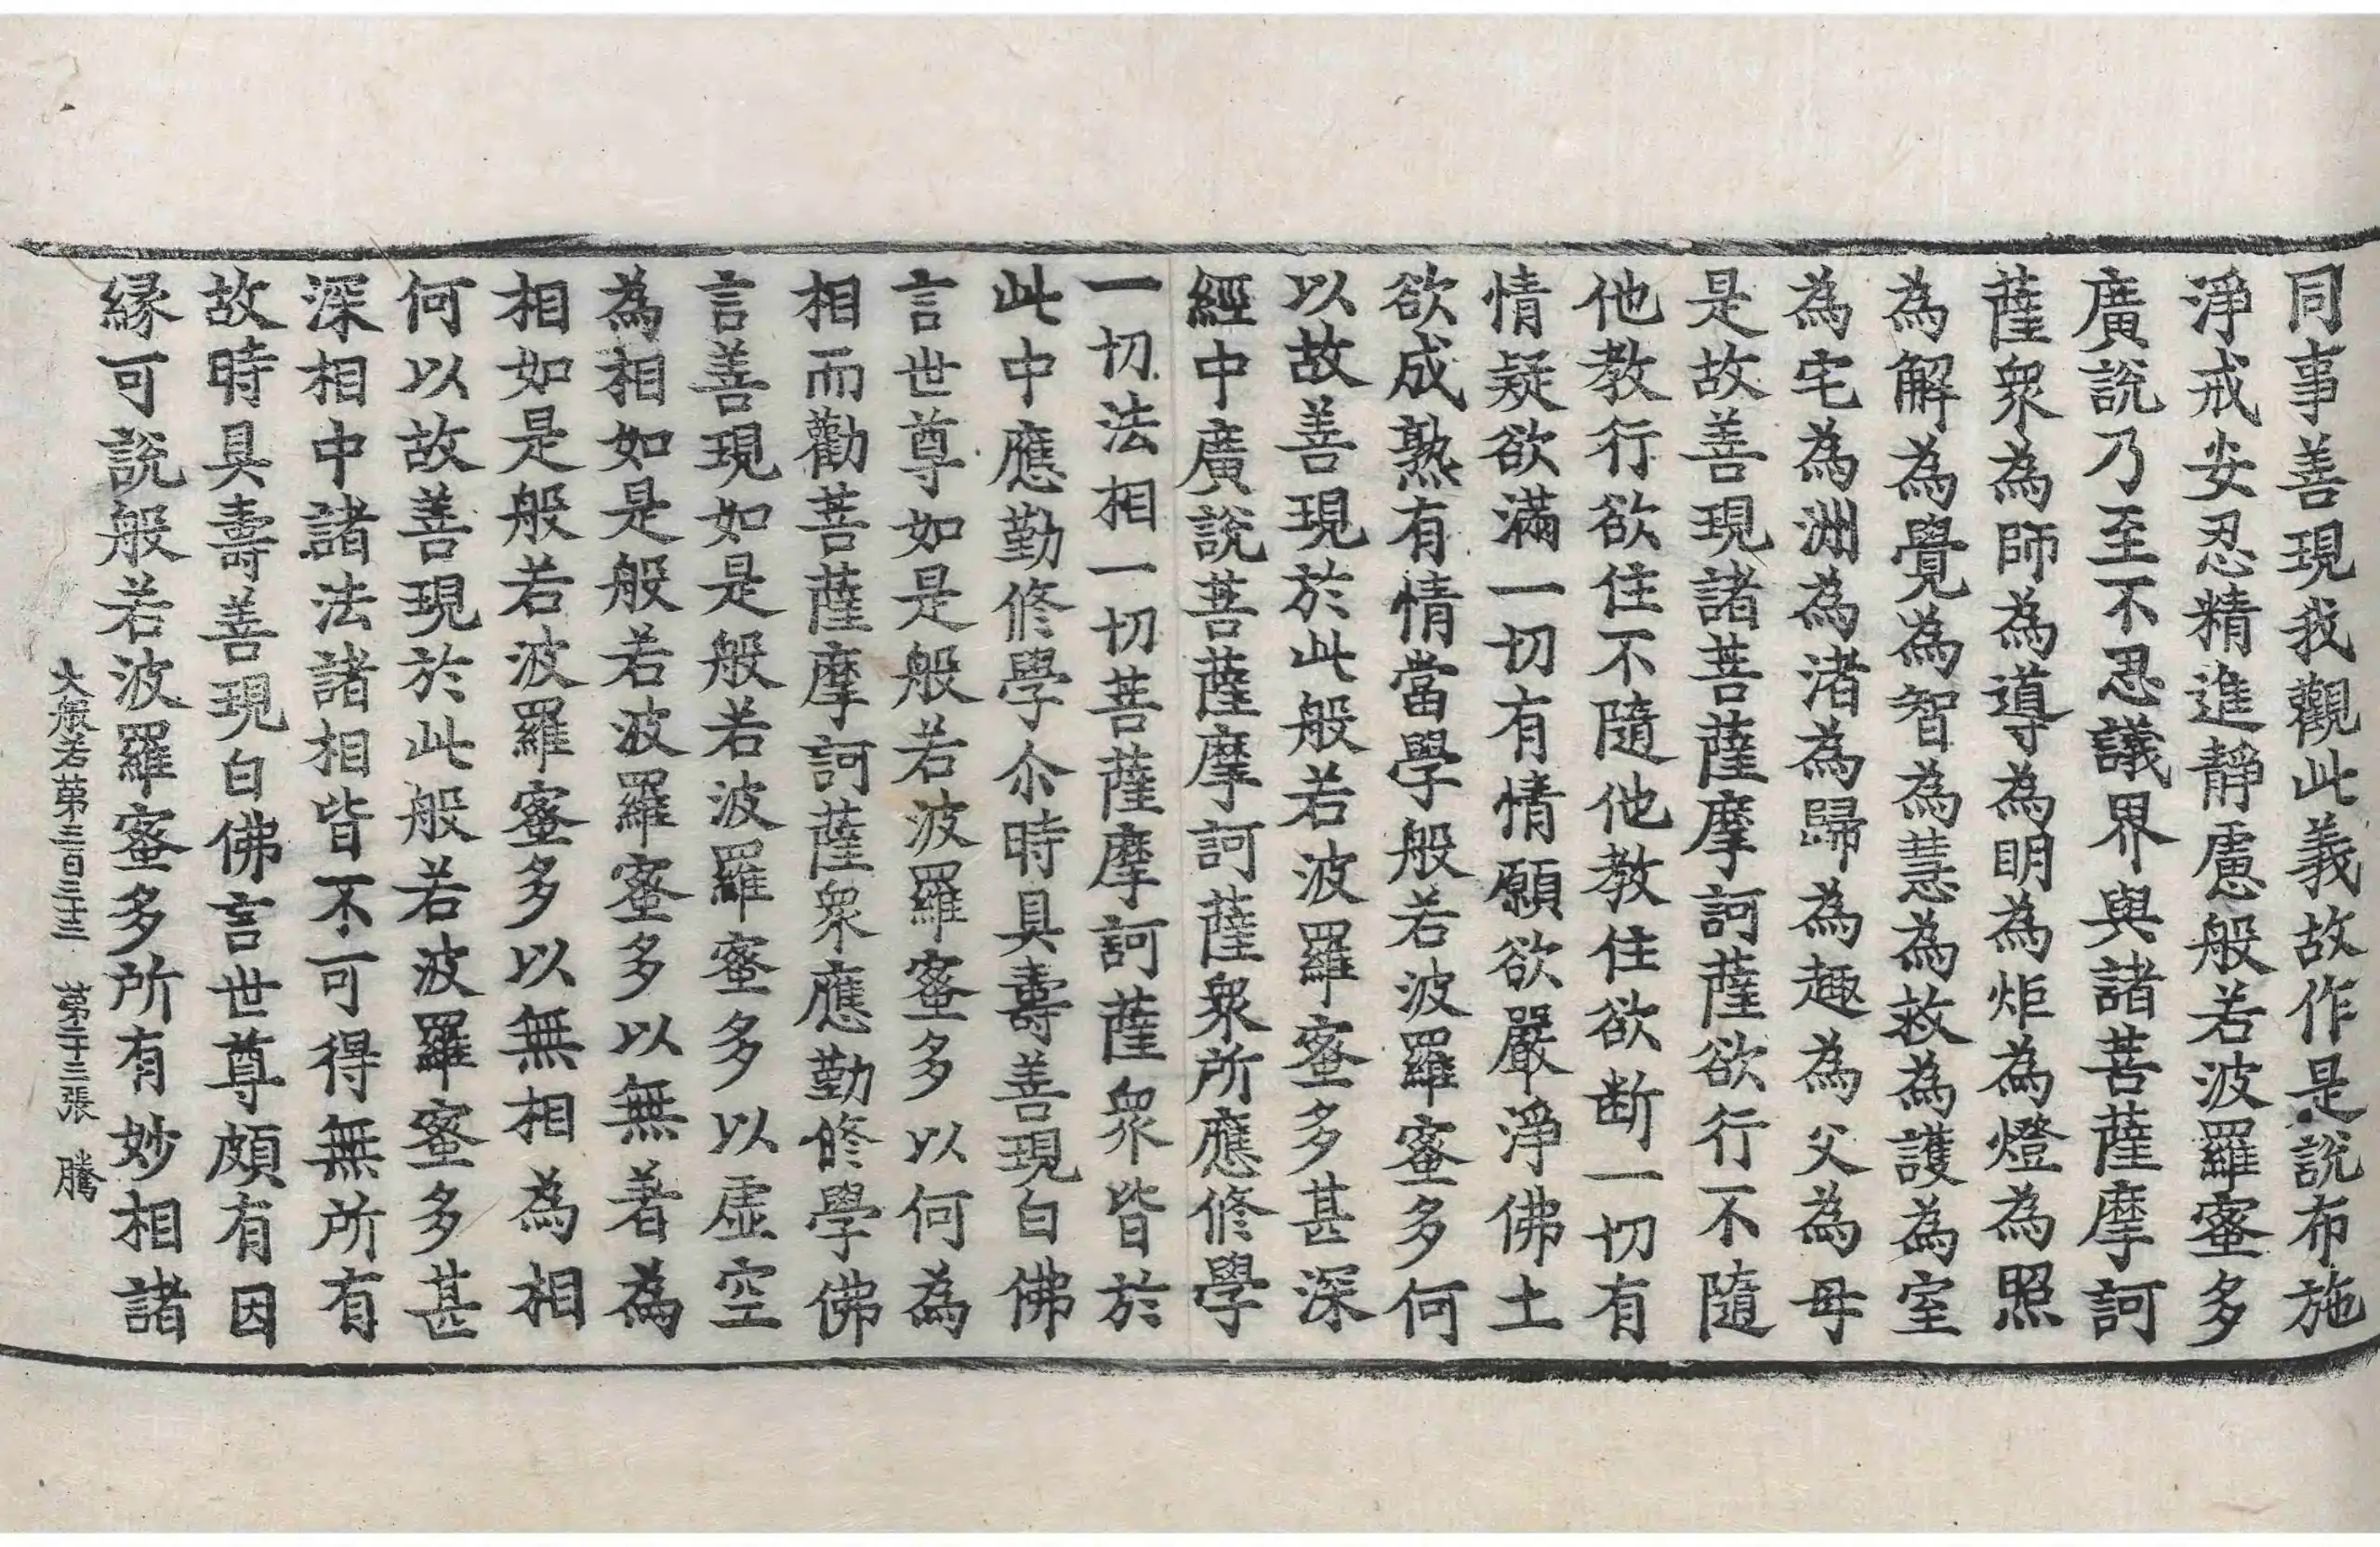 同事善現我觀此義故作是說布施
淨戒安忍精進靜慮般若波羅蜜多
廣說乃至不思議界與諸菩薩摩訶
薩衆為師為導為明為炬為燈為照
為解為覺為智為慧為救為護為室
為宅為洲為渚為歸為趣為父為母
是故善現諸菩薩摩訶薩欲行不隨
他教行欲住不隨他教住欲断一切有
情疑欲滿一切有情願欲嚴淨佛土
欲成熟有情當學般若波羅蜜多何
以故善現於此般若波羅蜜多甚深
經中廣說菩薩摩訶薩衆所應修學
一切法相一切菩薩摩訶薩衆皆於
此中應勤修學尒時具壽善現白佛
言世尊如是般若波羅蜜多以何為
相而勸菩薩摩訶薩衆應勤修學佛
言善現如是般若波羅蜜多以虛空
為相如是般若波羅蜜多以無著為
相如是般若波羅蜜多以無相為相
何以故善現於此般若波羅蜜多甚
深相中諸法諸相皆不可得無所有
故時具壽善現白佛言世尊頗有因
縁可說般若波羅蜜多所有妙相諸
大般若第三百三十三 第二十三張 騰